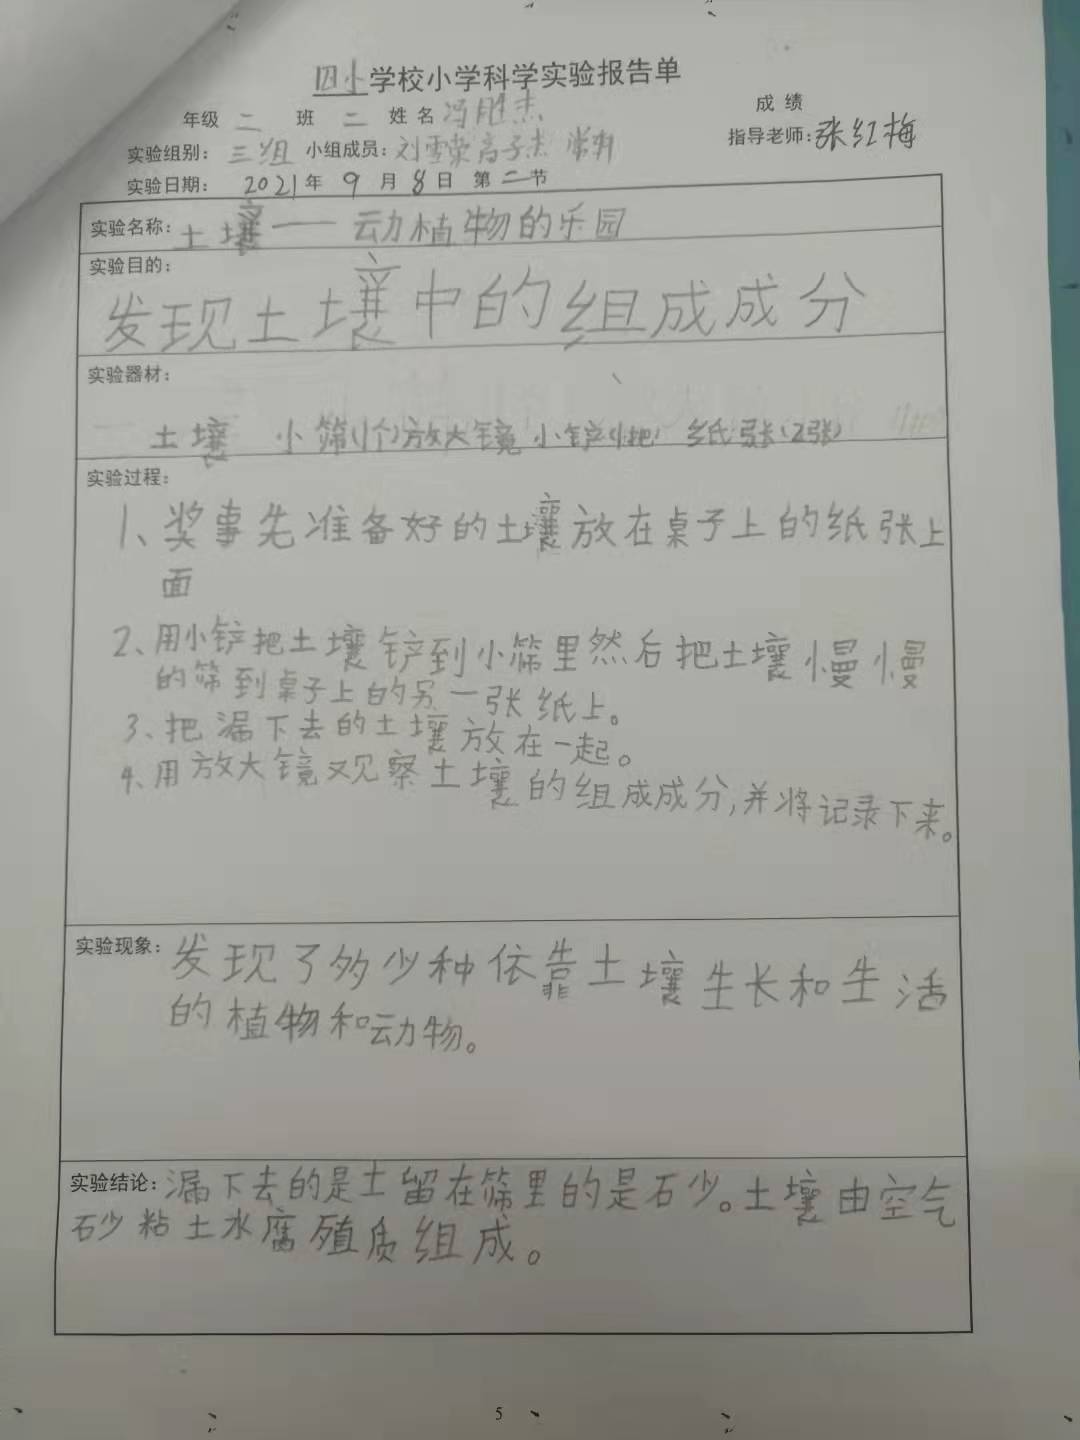 四小学校小学科学实验报告单
年级 二 班 二 姓名 冯胜杰
成绩
实验组别：三组 小组成员：刘雪荣 高子杰
指导老师：张红梅
实验日期： 2021年 9 月 8 日 第二节
实验名称：土壤——动植物的乐园
实验目的：
发现土壤中的组成成分
实验器材：
土壤 小筛(1个)放大镜 小铲(1把) 纸张(2张)
实验过程：
1、奖事先准备好的土壤放在桌子上的纸张上
面
2、用小铲把土壤铲到小筛里然后把土壤慢慢
的筛到桌子上的另一张纸上。
3、把漏下去的土壤放在一起。
4、用放大镜观察土壤的组成成分,并将记录下来。
实验现象：发现了多少种依靠土壤生长和生活
的植物和动物。
实验结论：漏下去的是土留在筛里的是石少。土壤由空气
石少粘土水腐殖质组成。
5